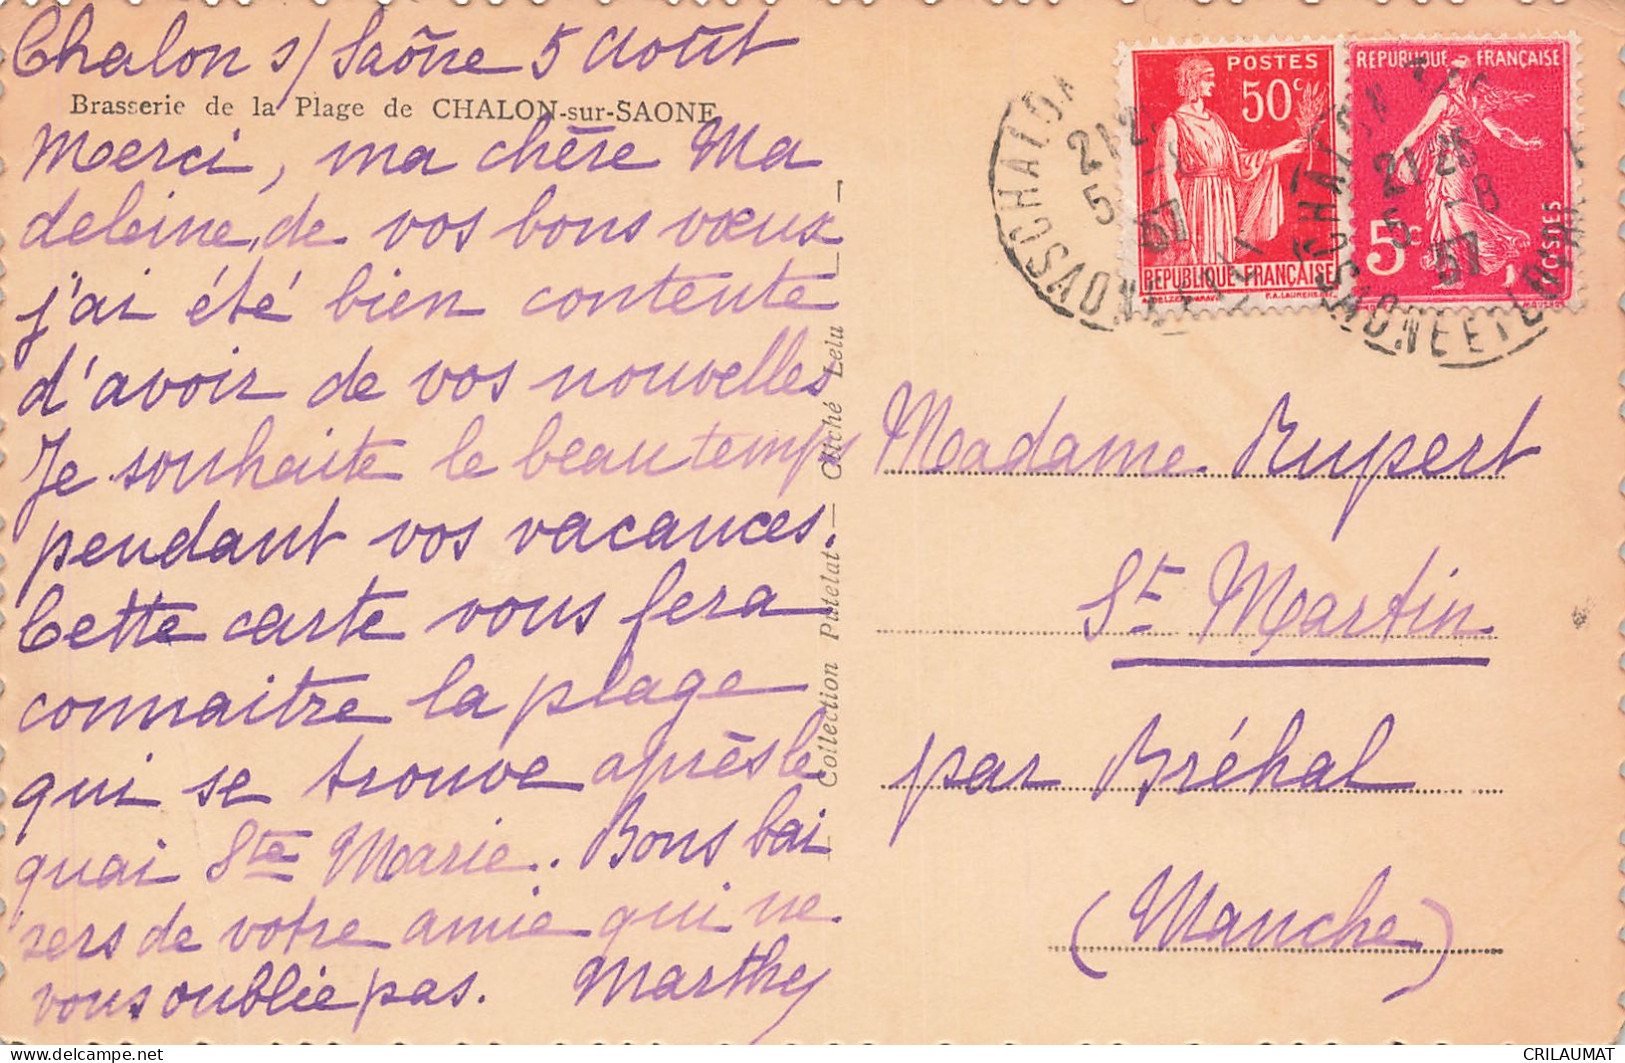 Chalon s/ Saône 5 Août
Brasserie de la Plage de CHALON-sur-SAONE
Merci, ma chère Ma
deleine, de vos bons vœux
j'ai été bien contente
d'avoir de vos nouvelles
Je souhaite le beau temps
pendant vos vacances.
Cette carte vous fera
connaitre la plage
qui se trouve après le
quai Ste Marie. Bons bai
sers de votre amie qui ne
vous oublie pas. Marthe
Collection Patelat — Cliché Lelu
POSTES
50c
REPUBLIQUE FRANÇAISE
REPUBLIQUE FRANÇAISE
5c
POSTES
CHALON
21 25
5 -8
37
SAONE ET LOIRE
CHALON
21 25
5 -8
37
SAONE ET LOIRE
Madame Rupert
St Martin
par Bréhal
(Manche)
CRILAUMAT